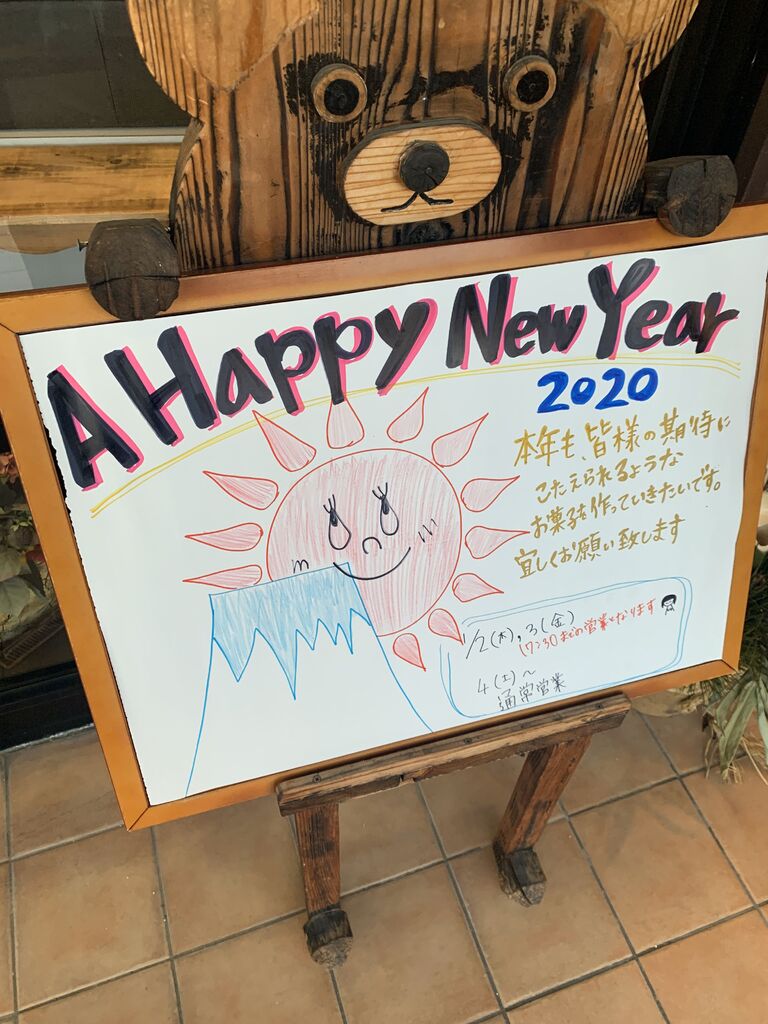 A Happy New Year
2020
本年も、皆様の期待に
こたえられるような
お菓子を作っていきたいです。
宜しくお願い致します
1/2(木),3(金)
17:30までの営業となります
4(土)～
通常営業